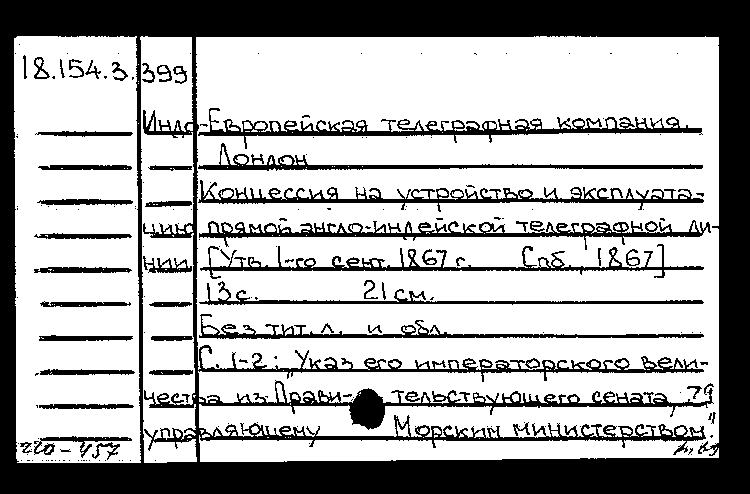 18.154.3.399
Индо-Европейская телеграфная компания.
Лондон
Концессия на устройство и эксплуата-
цию прямой англо-индейской телеграфной ли-
нии. [Утв. 1-го сент. 1867 г. Спб., 1867]
13 с. 21 см.
Без тит. л. и обл.
С. 1-2: „Указ его императорского вели-
чества из Прави- тельствующего сената, 79
управляющему Морским министерством."
220-457